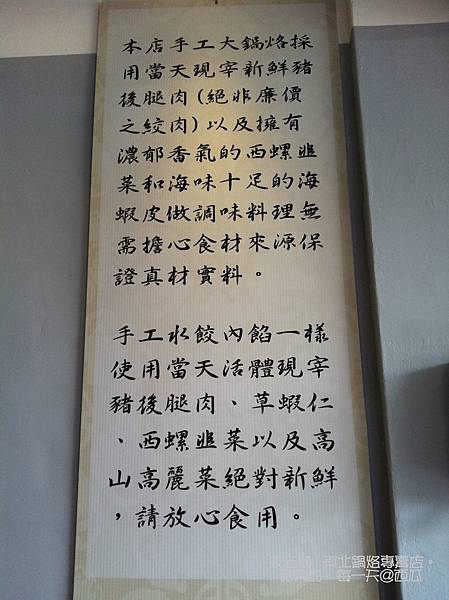 本店手工大鍋烙採
用當天現宰新鮮豬
後腿肉(絕非廉價
之絞肉)以及擁有
濃郁香氣的西螺韭
菜和海味十足的海
蝦皮做調味料理無
需擔心食材來源保
證真材實料。
手工水餃內餡一樣
使用當天活體現宰
豬後腿肉、草蝦仁
、西螺韭菜以及高
山高麗菜絕對新鮮
，請放心食用。
南北鍋烙專賣店
每一天@西瓜